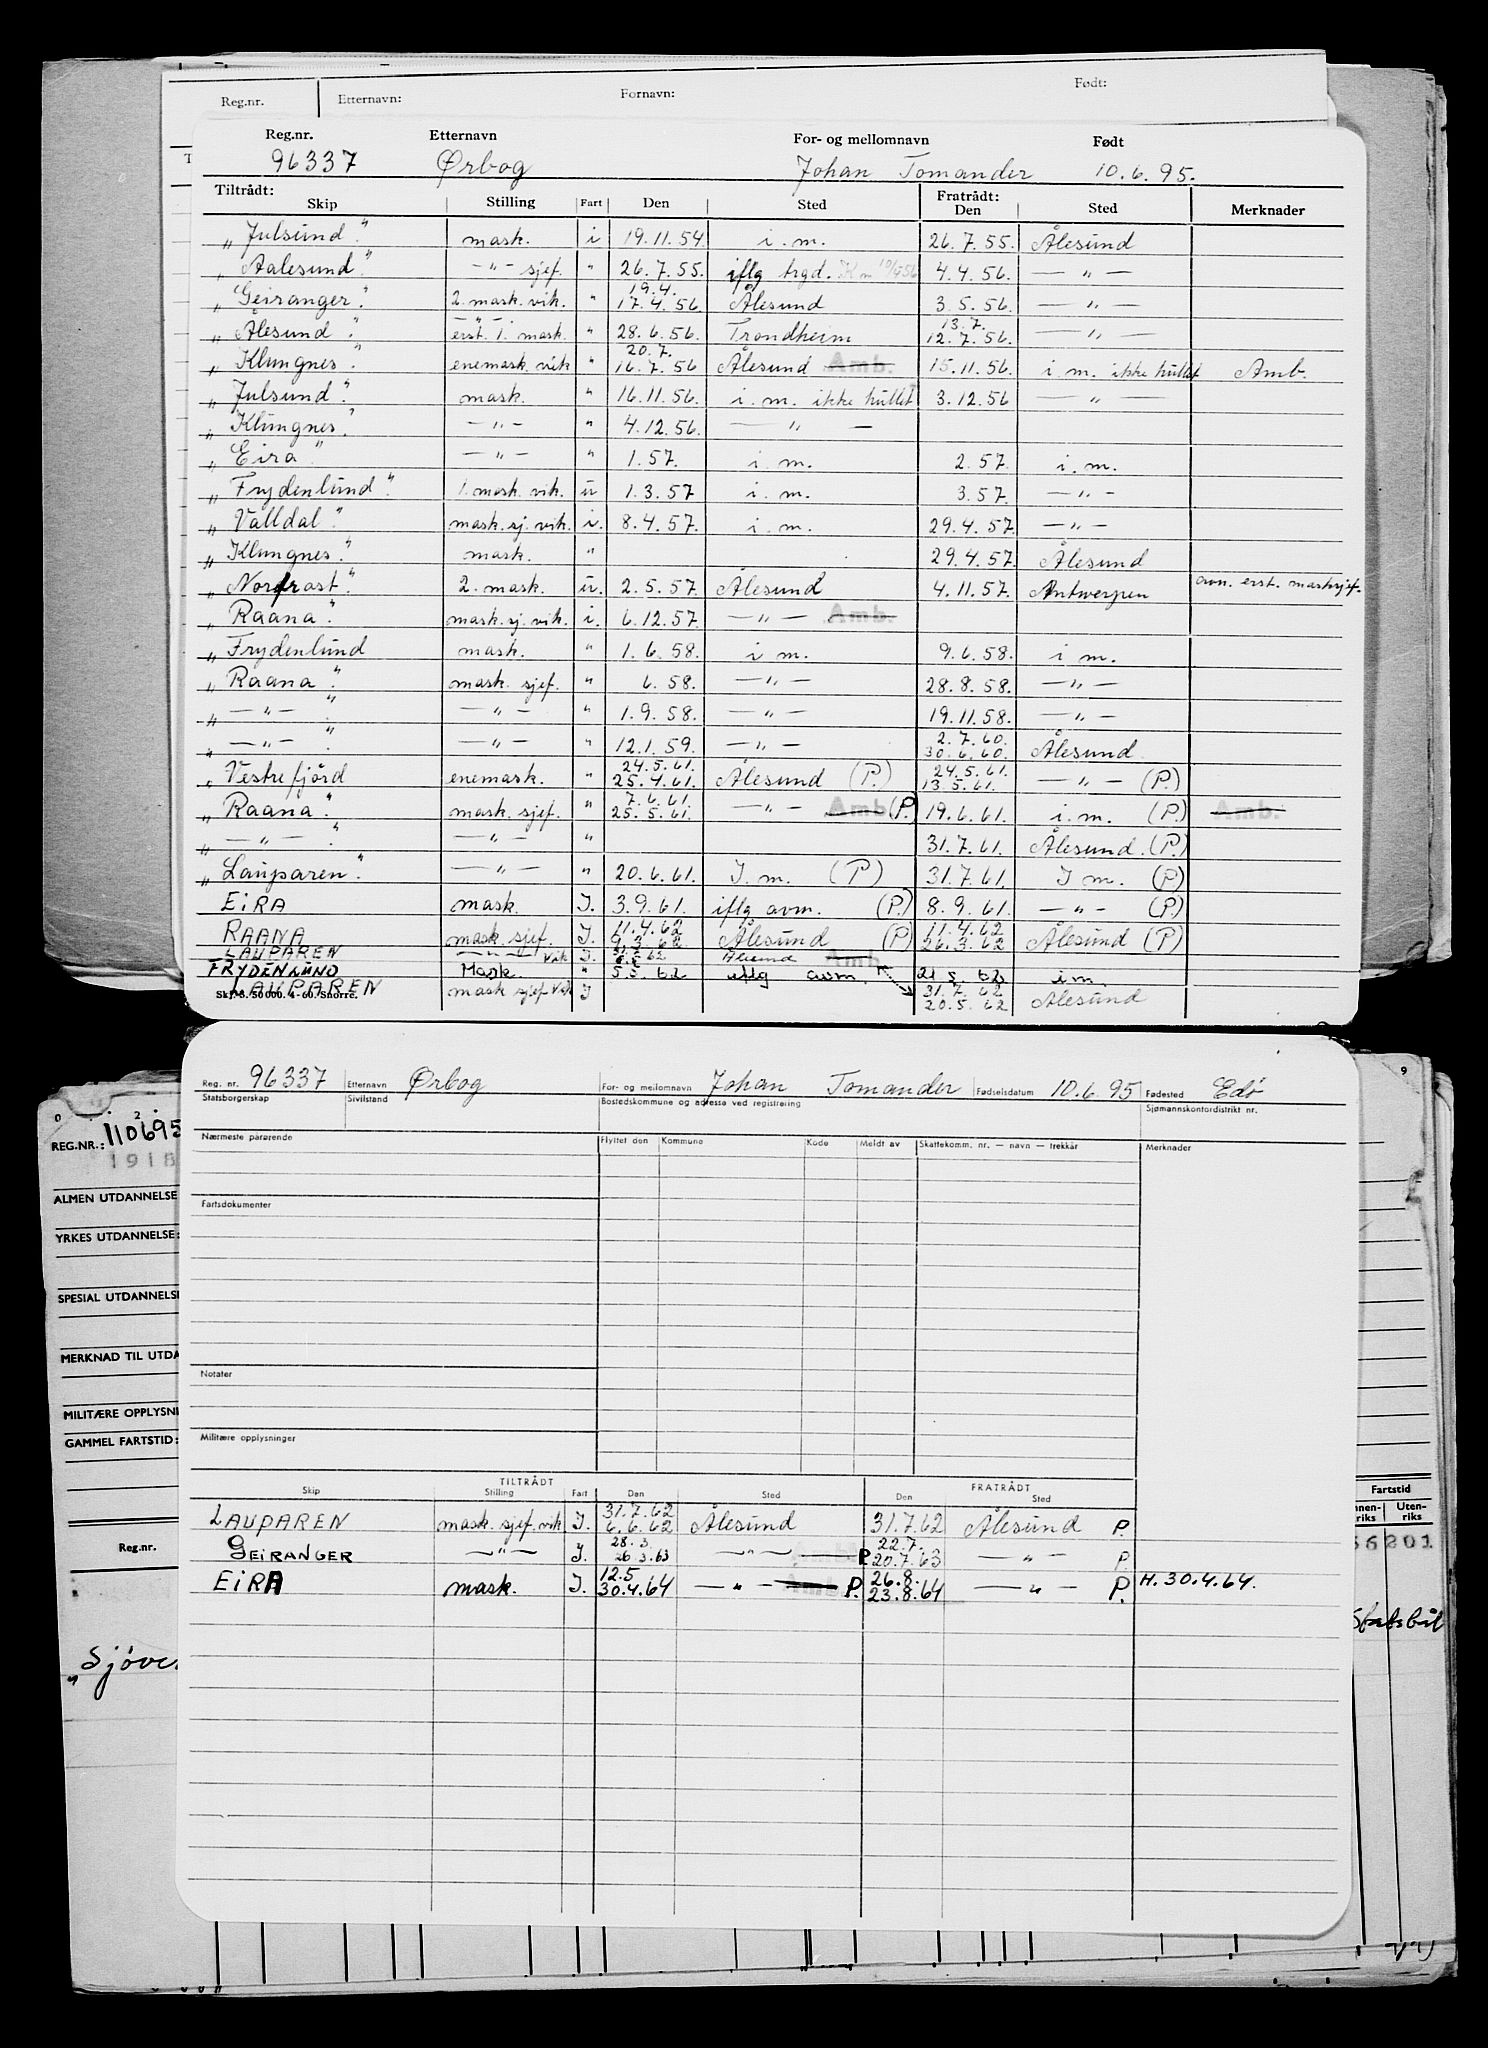 Reg.nr. Etternavn: Fornavn: Født:
Reg.nr. Etternavn For- og mellomnavn Født
96337 Ørbog Johan Tomander 10.6.95.
Tiltrådt: Fratrådt:
Skip Stilling Fart Den Sted Den Sted Merknader
„Julsund" mask. i 19.11.54. i.m. 26.7.55. Ålesund
„Aalesund" —„— sjef. " 26.7.55. iflg hrgd. 4.4.56. —„—
19.4.
„Geiranger" 2. mask. vik. " 17.4.56. Ålesund 3.5.56. —„—
—„— 13.7.
„Ålesund" erst. 1. mask. " 28.6.56. Trondheim 12.7.56. —„—
20.7.
„Klungnes" enemask. vik " 16.7.56 Ålesund Amb. 15.11.56. i.m. ikke hullet Amb.
„Julsund" mask. " 16.11.56. i.m. ikke hullet 3.12.56 —„—
„Klungnes" —„— " 4.12.56. —„—
„Eira" —„— " 1.57. i.m. 2.57. i.m.
„Frydenlund" 1. mask. vik. u 1.3.57 i.m. 3.57. —„—
„Valldal" mask. sj. vik. i. 8.4.57. i.m. 29.4.57. —„—
„Klungnes." mask. " 29.4.57. Ålesund
„Norfrost" 2. mask. u. 2.5.57. Ålesund 4.11.57. Antwerpen avm. erst. masksjef.
„Raana" mask. sj. vik. i. 6.12.57. —„— Amb.
„Frydenlund mask. " 1.6.58. i m. 9.6.58. i m.
„Raana" mask. sjef. " 6.58. —„— 28.8.58. —„—
„—„—" —„— " 1.9.58. —„— 19.11.58. —„—
2.7.60.
„—„—" —„— " 12.1.59. —„— 30.6.60. Ålesund
24.5.61. 24.5.61.
„Vestrefjord enemask. " 25.4.61. Ålesund (P.) 13.5.61. —„— (P.)
7.6.61.
„Raana" mask. sjef. " 25.5.61. —„— Amb (P.) 19.6.61. i.m. (P.) Amb.
„—„—" —„— " 31.7.61. Ålesund. (P.)
„Lauparen" —„— " 20.6.61. I.m. (P) 31.7.61. I m. (P)
EIRA mask. I. 3.9.61. iflg avm. (P.) 8.9.61. —„— (P.)
11.4.62 11.4.62
RAANA mask. sjef. I. 9.3.62. Ålesund (P) 26.3.62 Ålesund (P)
LAUPAREN —„— Vik I. Ålesund Amb
FRYDENLUND Mask. " 5.5.62 iflg avm. 21.5.62 i m.
31.7.62
LAUPAREN mask sjef Vik I 20.5.62 Ålesund
Skf. 8. 50 000. 4-60. Snorre.
Reg. nr. 96337 Etternavn Ørbog For- og mellomnavn Johan Tomander Fødselsdatum 10.6.95 Fødested Edö
Statsborgerskap Sivilstand Bostedskommune og adressa ved registrering Sjømannskontordistrikt nr.
Nærmeste pårørende Flyttet den Kommune Kode Meldt av Skattekomm. nr. — navn — trekkår Merknader
Fartsdokumenter
Notater
Militære opplysninger
TILTRÅDT FRATRÅDT
Skip Stilling Fart Den Sted Den Sted
31.7.62
LAUPAREN mask. sjef. vik I. 6.6.62 Ålesund 31.7.62 Ålesund P.
28.3. 22.7.
GEIRANGER —„— I. 26.3.63 —„— P 20.7.63 —„— P
12.5 26.8.
EIRA mask. I. 30.4.64 —„— Amb P. 23.8.64 —„— P. H. 30.4.64.
0 2 9
REG.NR.: 110695
1918
ALMEN UTDANNELSE
YRKES UTDANNELSE:
SPESIAL UTDANNELSE
MERKNAD TIL UTDA
MILITÆRE OPPLYSNI
GAMMEL FARTSTID:
Reg.nr.
„Sjøve
Fartstid
nnen-riks Uten-riks
56201
Statsbåt